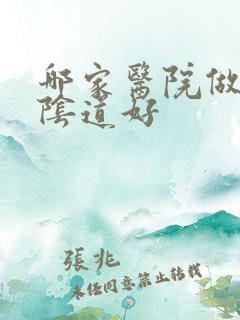 哪家醫院做
陰道好
張兆
未任同意禁止轉載